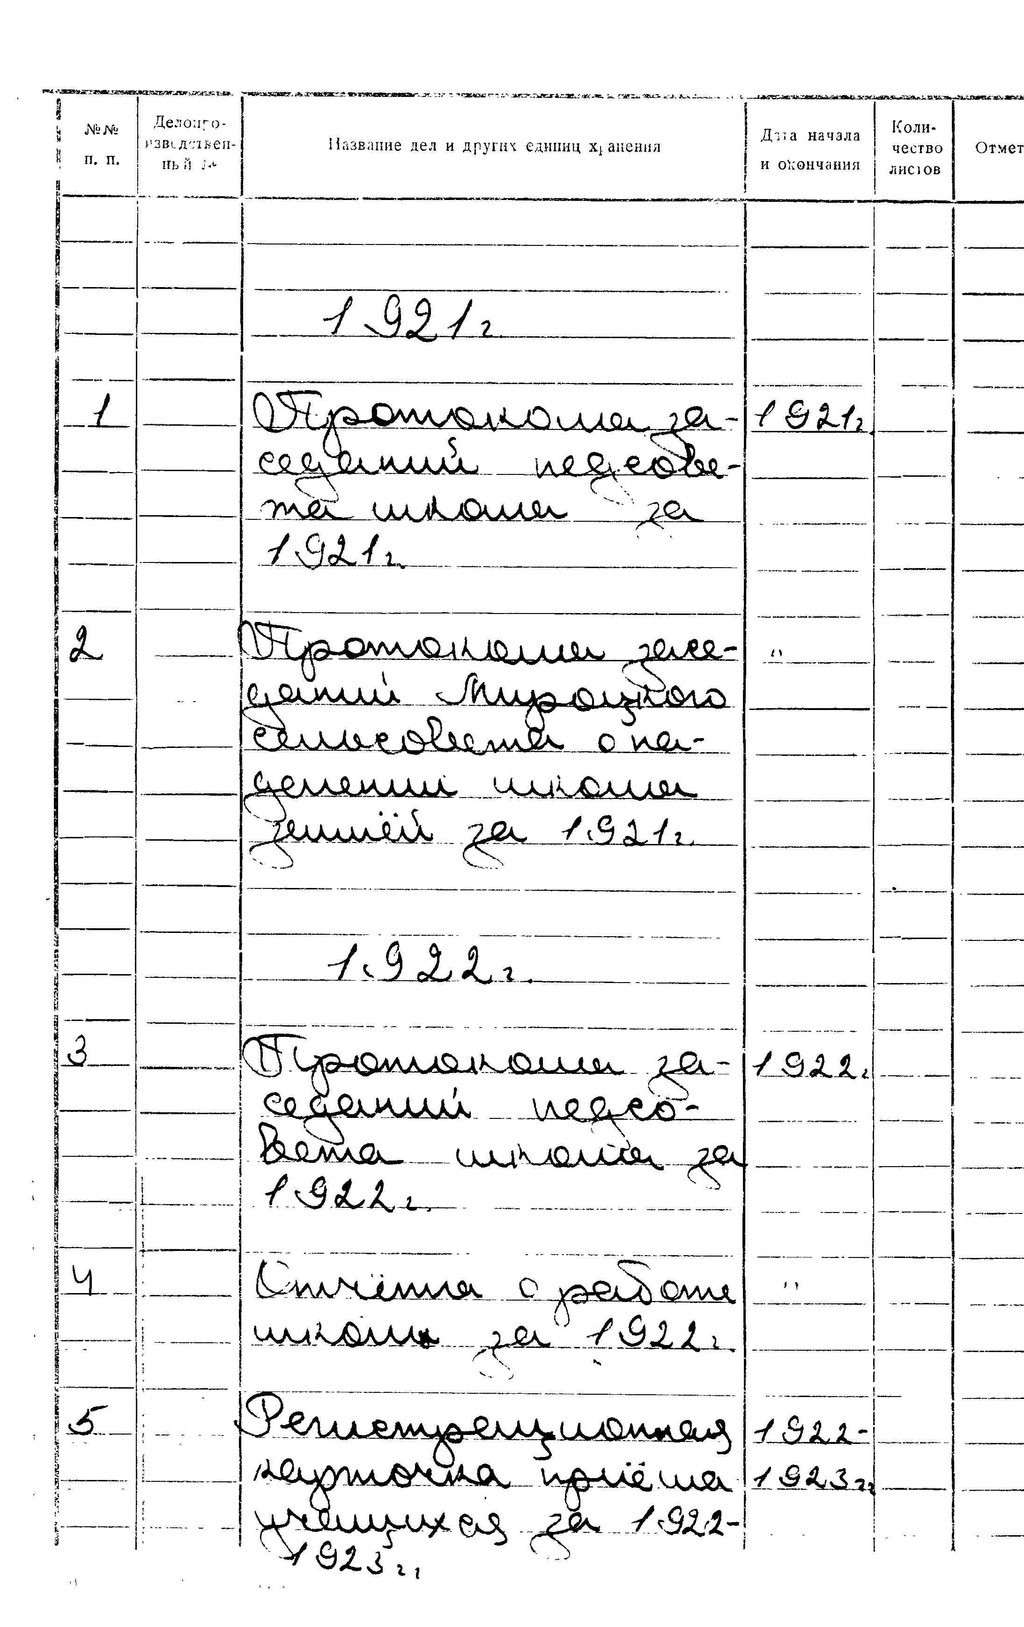 №№ п. п.
Делопро-
изводствен-
ный №
Название дел и других единиц хранения
Дата начала
и окончания
Коли-
чество
листов
Отмет
1921г.
1 Протоколы за- 1921г.
седаний педсове-
та школы за
1921г.
2 Протоколы засе- "
даний Мироцкого
сельсовета о на-
делении школы
землёй за 1921г.
1922г.
3 Протоколы за- 1922г
седаний педсо-
вета школы за
1922г.
4 Отчёты о работе "
школы за 1922г.
5 Регистрационная 1922-
карточка приёма 1923гг
учащихся за 1922-
1923гг